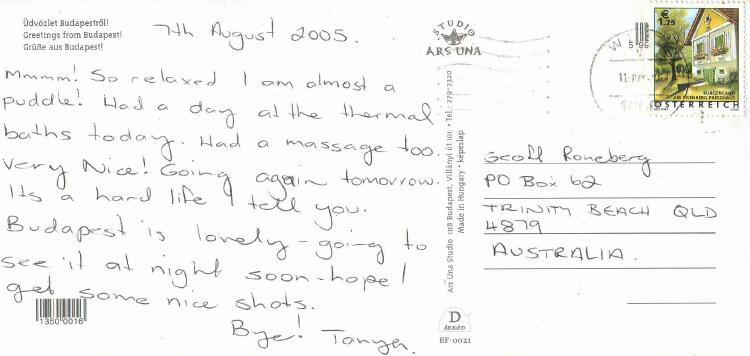 Üdvözlet Budapestről!
Greetings from Budapest!
Grüße aus Budapest!
7th August 2005.
Mmmm! So relaxed I am almost a
puddle! Had a day at the thermal
baths today. Had a massage too.
Very Nice! Going again tomorrow.
Its a hard life I tell you.
Budapest is lovely - going to
see it at night soon - hope I
get some nice shots.
Bye! Tanya.
1350 0016
STUDIO
ARS UNA
Ars Una Studio 1118 Budapest, Villányi út 101. • Tel.: 279-2320
Made in Hungary • képeslap
D
ÁRKÓD
BF-0021
€
1.25
BURGENLAND
AM EISENBERG PRESSHAUS
ÖSTERREICH
Geoff Roneberg
PO Box 62
TRINITY BEACH QLD
4879
AUSTRALIA.